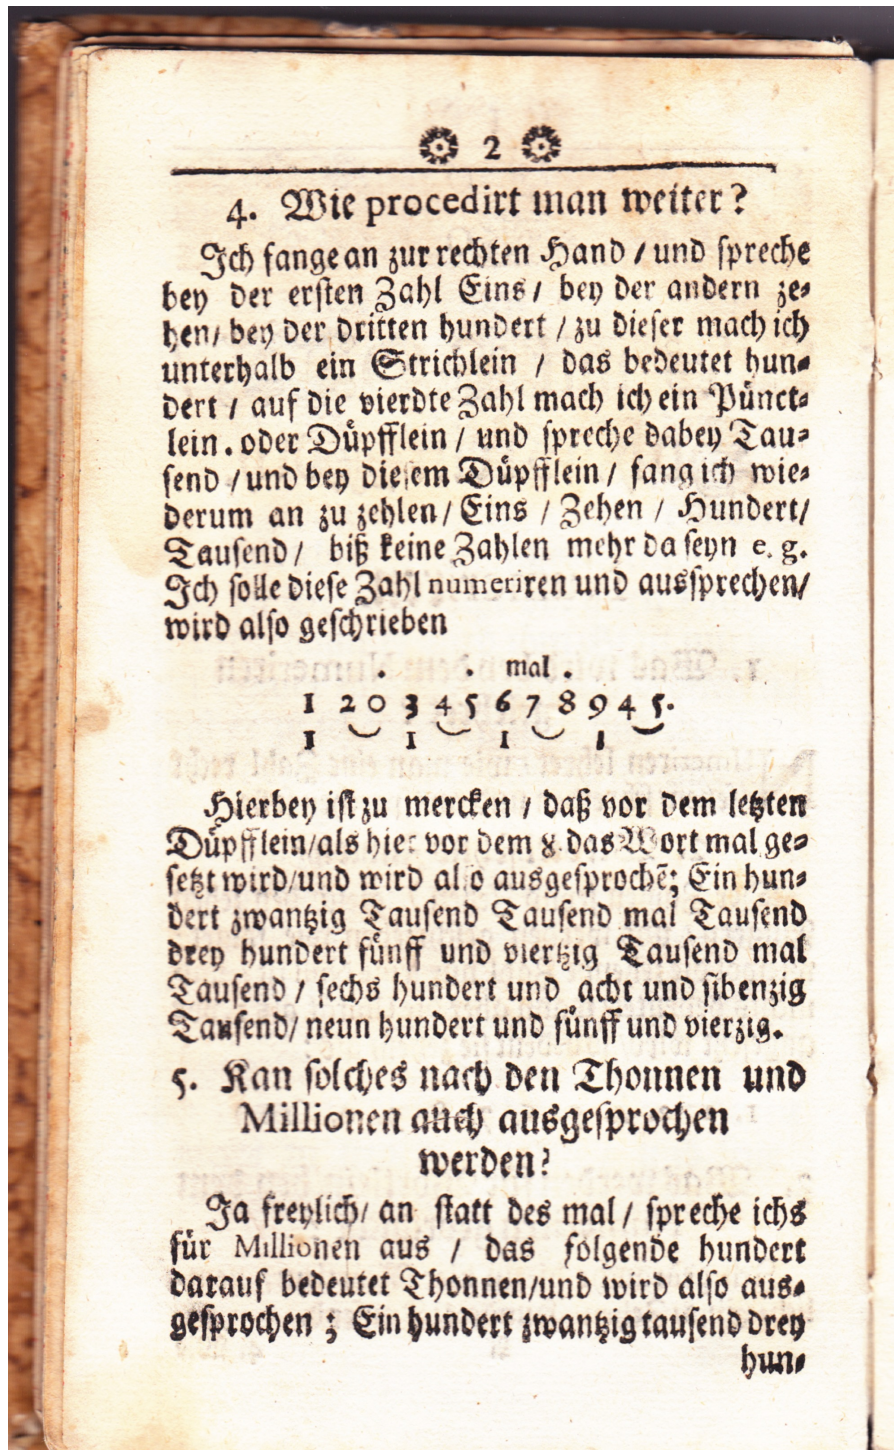 2
4. Wie procedirt man weiter?
Ich fange an zur rechten Hand / und spreche
bey der ersten Zahl Eins / bey der andern ze-
hen / bey der dritten hundert / zu dieser mach ich
unterhalb ein Strichlein / das bedeutet hun-
dert / auf die vierdte Zahl mach ich ein Pünct-
lein . oder Düpfflein / und spreche dabey Tau-
send / und bey diesem Düpfflein / fang ich wie-
derum an zu zehlen / Eins / Zehen / Hundert /
Tausend / biß keine Zahlen mehr da seyn e. g.
Ich solle diese Zahl numeriren und aussprechen /
wird also geschrieben
. . mal .
1 2 0 3 4 5 6 7 8 9 4 5.
1 1 1 1
Hierbey ist zu mercken / daß vor dem letzten
Düpfflein / als hier vor dem 8. das Wort mal ge-
setzt wird / und wird also ausgesprochē; Ein hun-
dert zwantzig Tausend Tausend mal Tausend
drey hundert fünff und viertzig Tausend mal
Tausend / sechs hundert und acht und sibenzig
Tausend / neun hundert und fünff und vierzig.
5. Kan solches nach den Thonnen und
Millionen auch ausgesprochen
werden?
Ja freylich / an statt des mal / spreche ichs
für Millionen aus / das folgende hundert
darauf bedeutet Thonnen / und wird also aus-
gesprochen ; Ein hundert zwantzig tausend drey
hun-